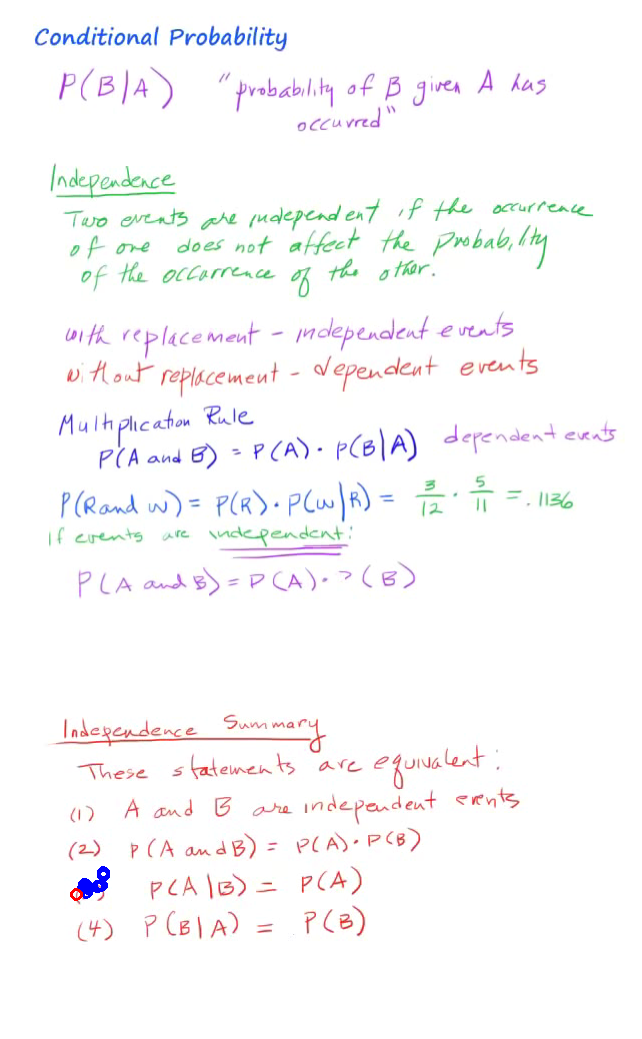 Conditional Probability
P(B|A) "probability of B given A has
occurred"
Independence
Two events are independent if the occurrence
of one does not affect the probability
of the occurrence of the other.
with replacement - independent events
without replacement - dependent events
Multiplication Rule
P(A and B) = P(A) · P(B|A) dependent events
P(R and W) = P(R) · P(W|R) = 3/12 · 5/11 = .1136
if events are independent:
P(A and B) = P(A) · P(B)
Independence Summary
These statements are equivalent:
(1) A and B are independent events
(2) P(A and B) = P(A) · P(B)
P(A|B) = P(A)
(4) P(B|A) = P(B)